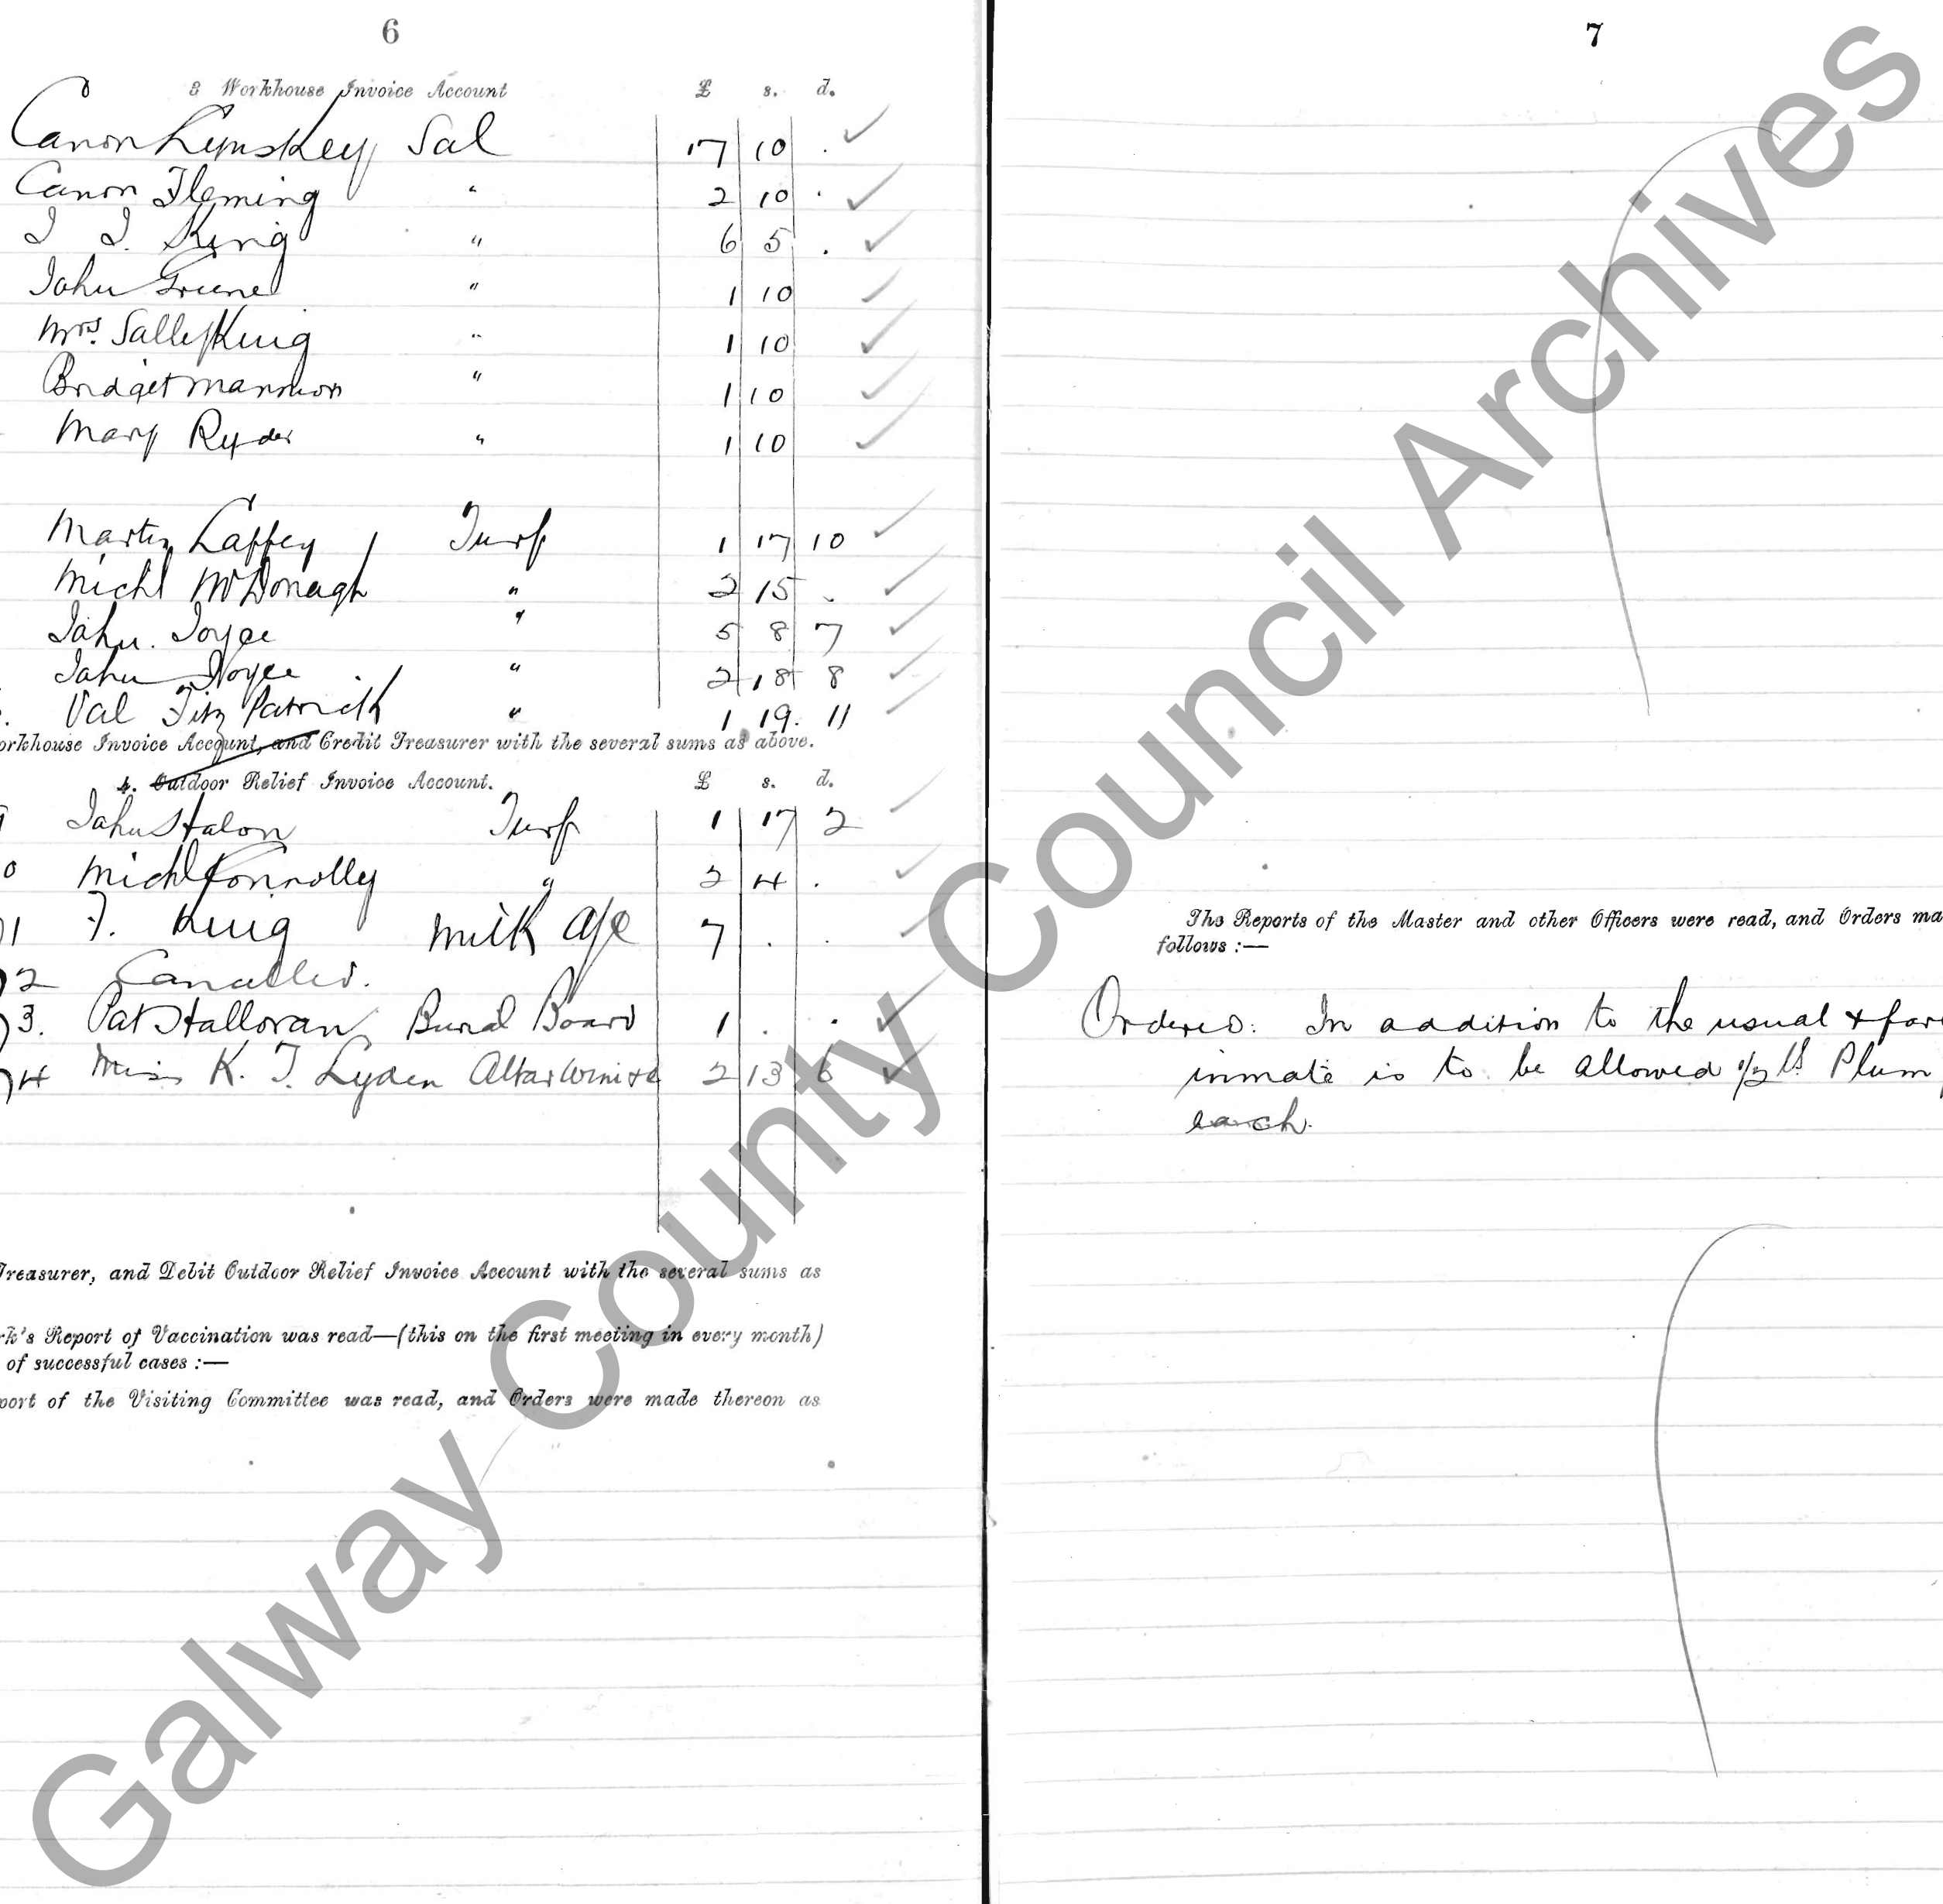 6
3 Workhouse Invoice Account £ s. d.
Canon Lynskey Sal 17 10 .
Canon Fleming " 2 10 .
J. King " 6 5 .
John Greene " 1 10
Mrs. Salley King " 1 10
Bridget Mannion " 1 10
Mary Ryder " 1 10
Martin Laffey Turf 1 17 10
Michl McDonagh " 2 15 .
John. Joyce " 5 8 7
John Noyce " 2 18 8
Val Fitz Patrick " 1 19. 11
orkhouse Invoice Account, and Credit Treasurer with the several sums as above.
4. Outdoor Relief Invoice Account. £ s. d.
John Halon Turf 1 17 2
0 Michl Connolly " 2 4 .
1 King Milk a/c 7 . .
2 Cancelled.
3. Pat Halloran Burial Board 1 . .
4 Miss K. T. Lyden Altar Wine &c 2 13 6
Treasurer, and Debit Outdoor Relief Invoice Account with the several sums as
rk's Report of Vaccination was read—(this on the first meeting in every month)
of successful cases :—
port of the Visiting Committee was read, and Orders were made thereon as
7
The Reports of the Master and other Officers were read, and Orders ma
follows :—
Ordered: In addition to the usual & far
inmate is to be allowed 1/2 lb Plum
each.
Galway County Council Archives